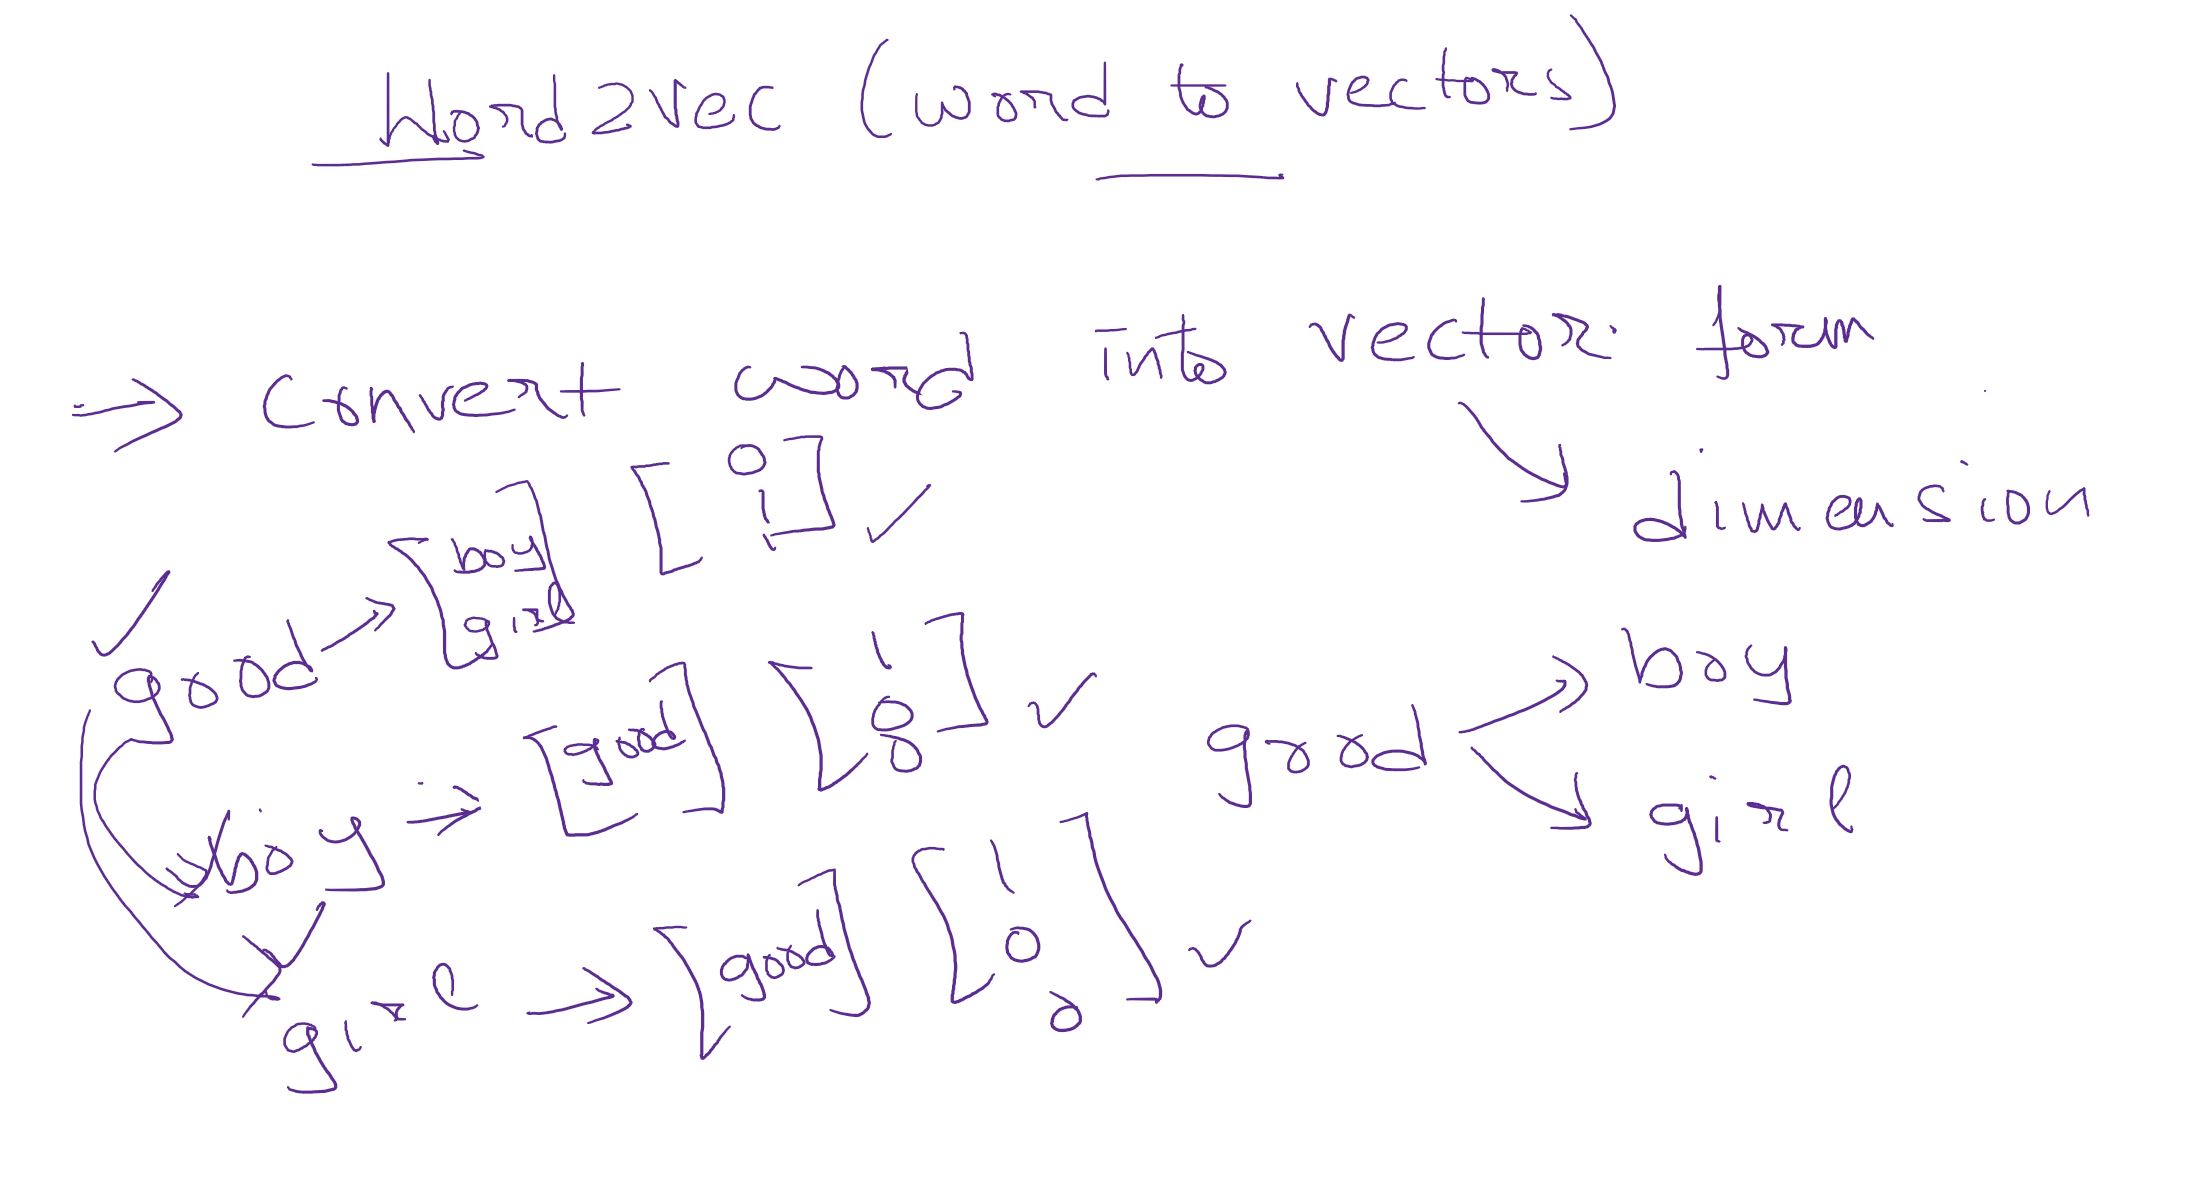 Word2vec (word to vectors)
=> Convert word into vector form
dimension
good → [boy girl] [0 1 1] ✓
boy → [good] [1 0 0] ✓
girl → [good] [1 0 0] ✓
good → boy
→ girl